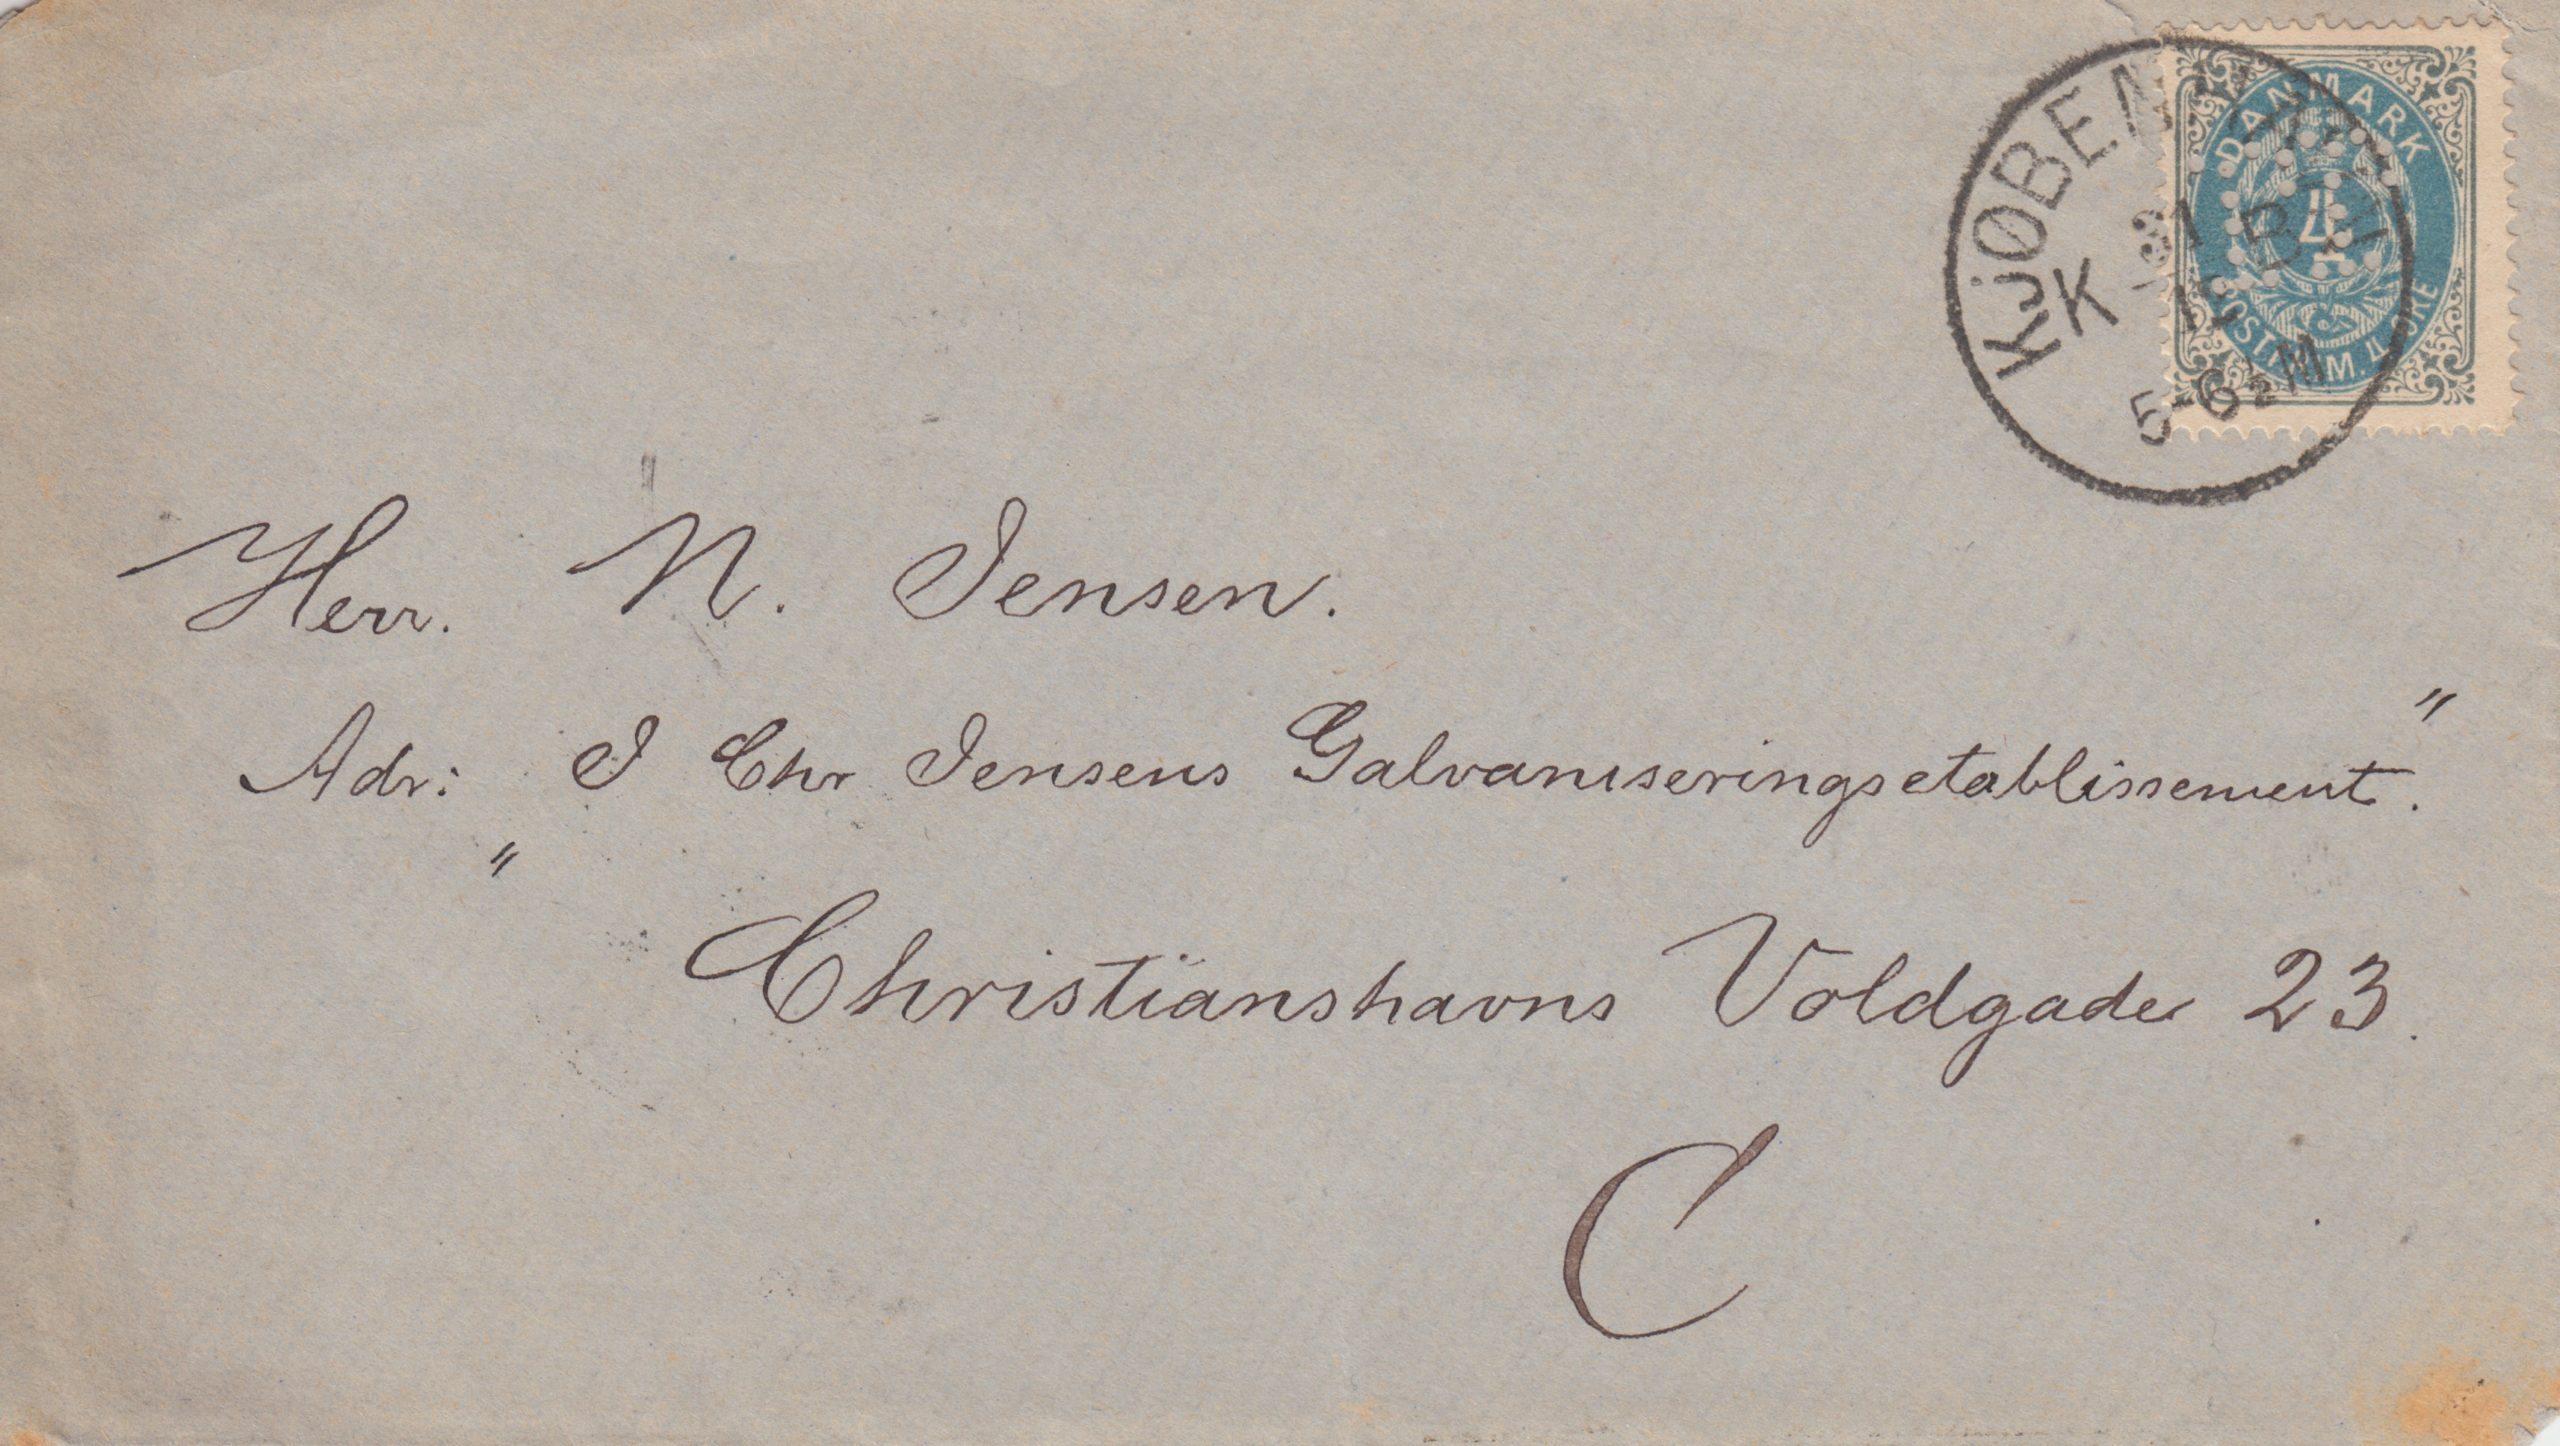 DANMARK
4
POSTFRIM. 4 ØRE
KJØBEN
K 31 B
12
5-6 2 M
Herr. N. Jensen.
Adr: „ J Chr Jensens Galvaniseringsetablissement."
Christianshavns Voldgade 23.
C